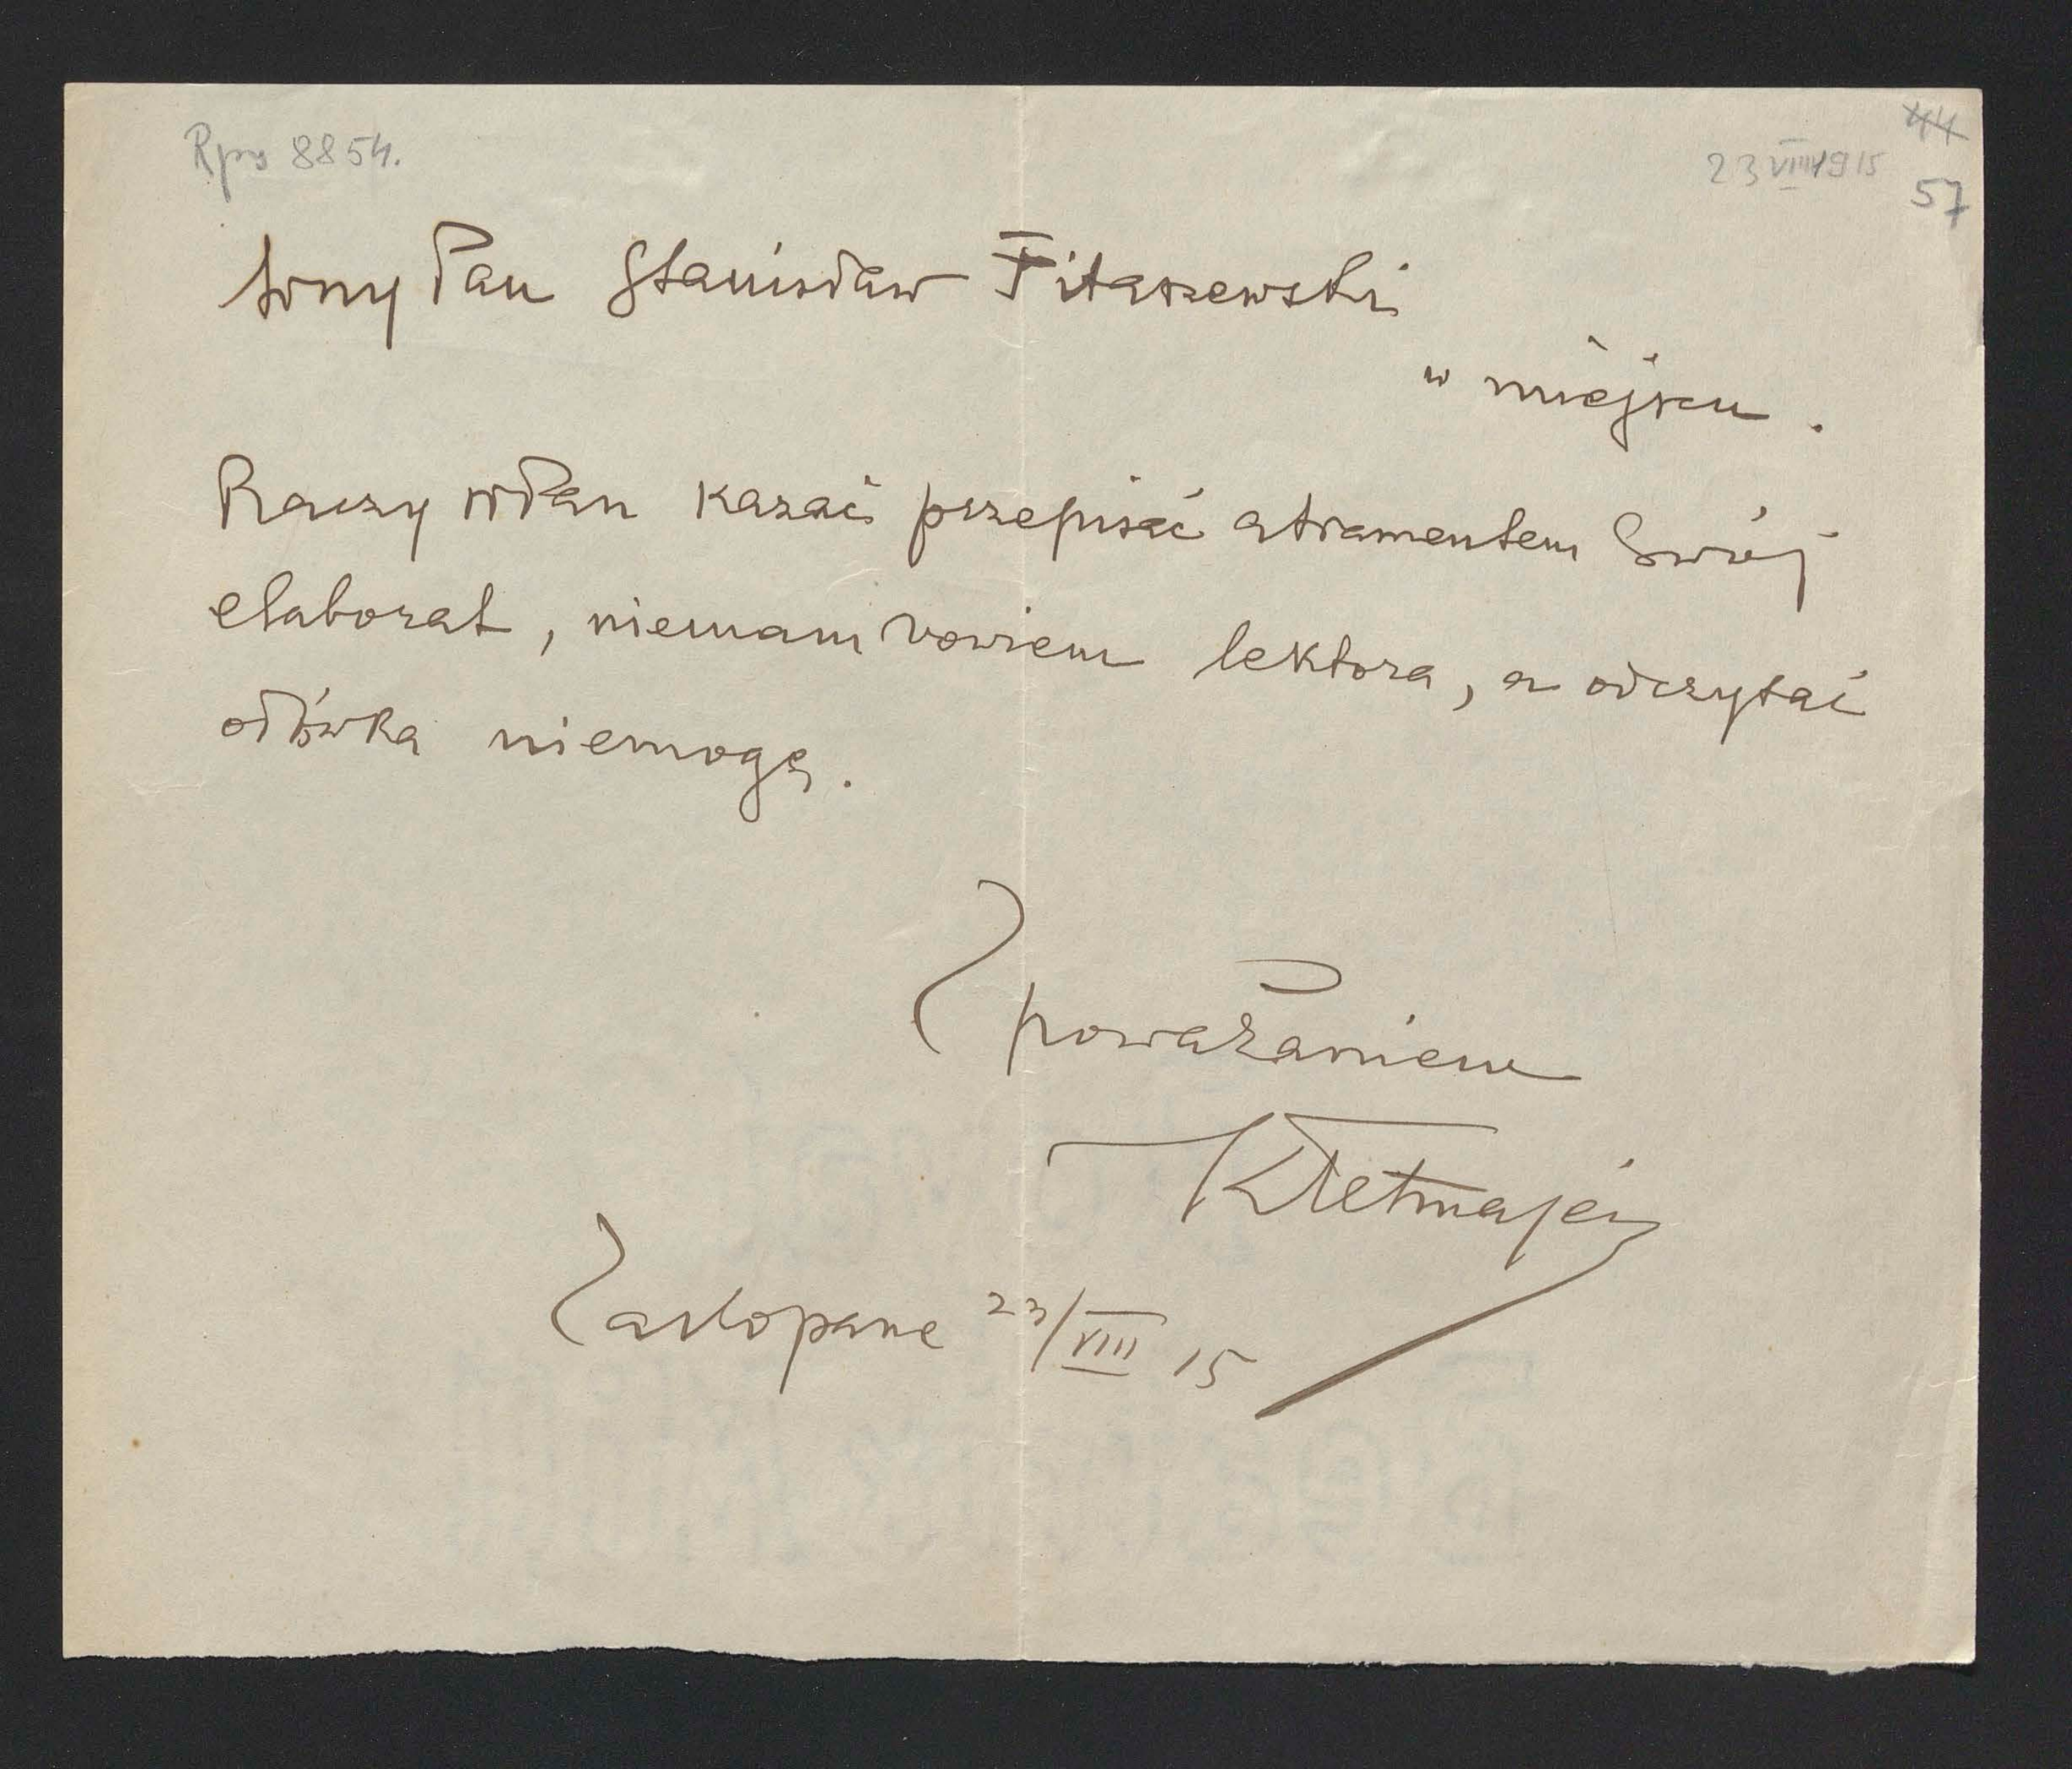 Rps 8854.
44
23 VIII 1915
57
Pan Stanisław Fitaszewski
w miejscu.
Raczy WPan kazać przepisać atramentem Swój
elaborat, niemam bowiem lektora, a odczytać
ołówka niemogę.
Z poważaniem
KTetmajer
Zakopane 23/VIII 15